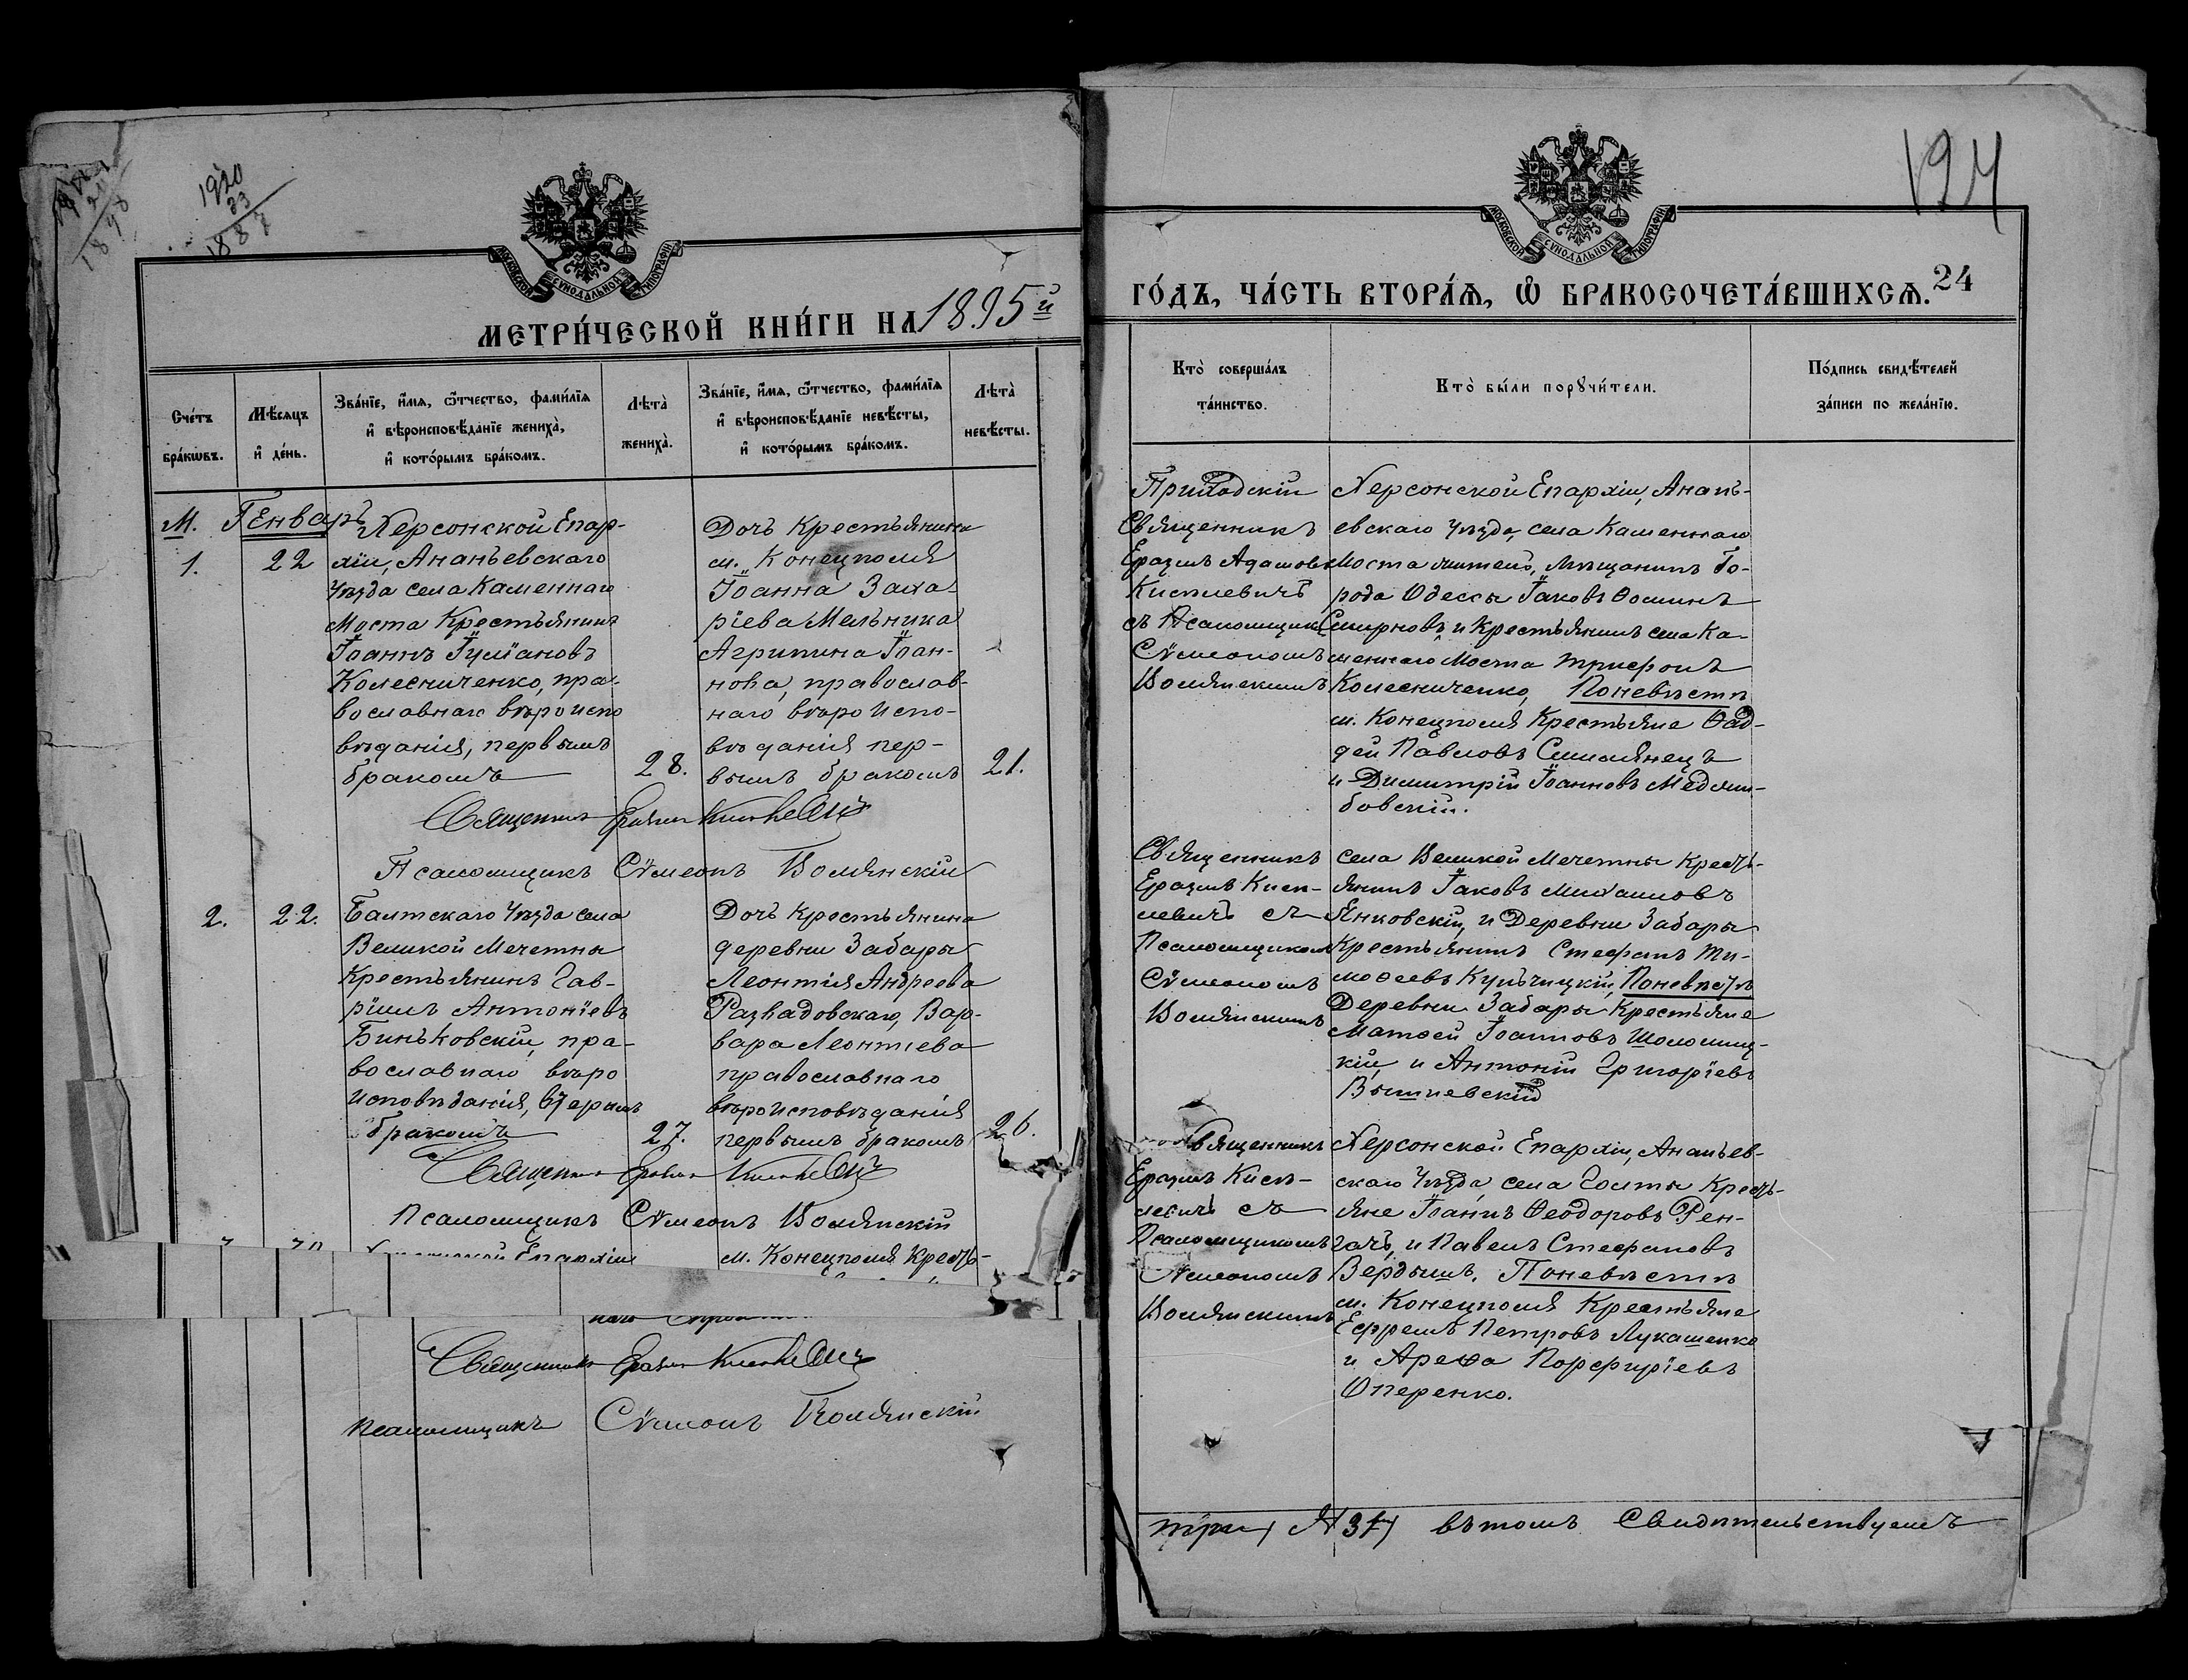 1920
33
1887
МОСКОВСКОЙ СѴНОДАЛЬНОЙ ТИПОГРАФІИ
МЕТРИ́ЧЕСКОЙ КНИ́ГИ НА 1895й
Сче́тъ бра́кѡвъ.
Мѣ́сяцъ и҆ де́нь.
Зва́нїе, и҆́мя, ѻ҆́тчество, фами́лїя
и҆ вѣроисповѣ́данїе жениха̀,
и҆ кото́рымъ бра́комъ.
Лѣта̀ жениха̀.
Зва́нїе, и҆́мя, ѻ҆́тчество, фами́лїя
и҆ вѣроисповѣ́данїе невѣ́сты,
и҆ кото́рымъ бра́комъ.
Лѣта̀ невѣ́сты.
М. Генварь
1.
22
Херсонской Епар-
хіи, Ананьевскаго
Уѣзда села Каменнаго
Моста Крестьянинъ
Іоаннъ Іуліановъ
Колесниченко, пра-
вославнаго вѣроиспо
вѣданія, первымъ
бракомъ
28.
Дочь Крестьянина
м. Конецполя
Іоанна Заха-
ріева Мельника
Агрипина Іоан-
нова, православ-
наго вѣроиспо-
вѣданія пер-
вымъ бракомъ
21.
Священник Еразмъ Кисилевичъ
Псаломщикъ Сѵмеонъ Волянскій
2.
22.
Балтскаго Уѣзда села
Великой Мечетны
Крестьянинъ Гав-
ріилъ Антоніевъ
Биньковскій, пра-
вославнаго вѣро
исповѣданія, вторымъ
бракомъ
27.
Дочь Крестьянина
деревни Забары
Леонтія Андреева
Развадовскаго, Вар-
вара Леонтиева
православнаго
вѣроисповѣданія
первымъ бракомъ
26.
Священник Еразмъ Кисилевичъ
Псаломщикъ Сѵмеонъ Волянскій
Епархіи
м. Конецполя Кресть-
Священникъ Еразмъ Кисилевичъ
Псаломщикъ Сѵмеонъ Волянскій
124
МОСКОВСКОЙ СѴНОДАЛЬНОЙ ТИПОГРАФІИ
ГО́ДЪ, ЧА́СТЬ ВТОРА́Я, Ѽ БРАКОСОЧЕТА́ВШИХСЯ. 24
Кто̀ соверша́лъ
та́инство.
Кто̀ бы́ли порꙋчи́тели.
По́дпись свидѣ́телей
за́писи по жела́нїю.
Приходскій
Священникъ
Еразмъ Адамовъ
Кисилевичъ
съ Псаломщикомъ
Сѵмеономъ
Волянскимъ
Херсонской Епархіи, Анань-
евскаго Уѣзда, села Каменнаго
Моста жители, Мѣщанинъ Го-
рода Одессы Іаковъ Ѳоминъ
Смирновъ и Крестьянинъ села Ка-
меннаго Моста Трифонъ
Колесниченко, Поневѣстѣ
м. Конецполя Крестьяне Ѳад-
дей Павловъ Смилянецъ
и Димитрій Іоанновъ Меджи-
бовскій.
Священникъ
Еразмъ Киси-
левичъ съ
Псаломщикомъ
Сѵмеономъ
Волянскимъ
села Великой Мечетны Кресть-
янинъ Іаковъ Михаиловъ
Янковскій, и Деревни Забары
Крестьянинъ Стефанъ Ти-
моѳеевъ Кульчицкій, Поневѣстѣ
Деревни Забары Крестьяне
Матѳей Іоанновъ Шоломиц-
кій, и Антоній Григоріевъ
Вышневскій
Священникъ
Еразмъ Киси-
левичъ съ
Псаломщикомъ
Сѵмеономъ
Волянскимъ
Херсонской Епархіи, Ананьев-
скаго Уѣзда, села Голты Кресть-
яне Іоаннъ Ѳеодоровъ Рен-
гачъ, и Павелъ Стефановъ
Вердышъ. Поневѣстѣ
м. Конецполя Крестьяне
Ефремъ Петровъ Лукашенко
и Арефа Порфиріевъ
Оперенко.
три) № 3) въ томъ Свидѣтельствуемъ